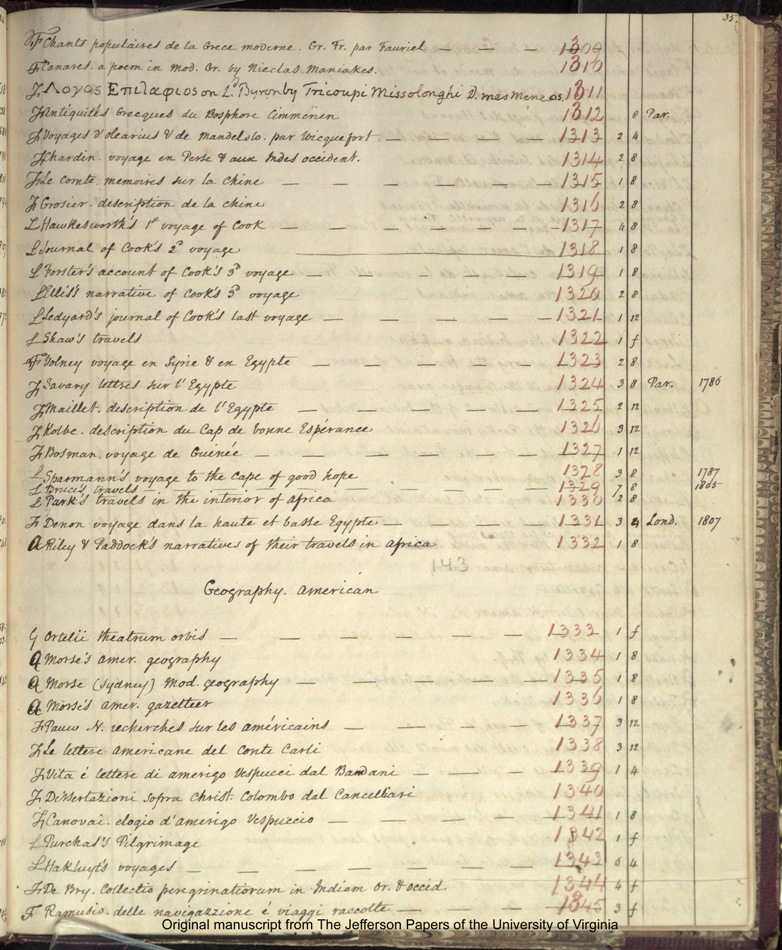 35.
F Chants populaires de la Grece moderne. Gr. Fr. par Fauriel — — — 1309
F Canares. a poem in Mod. Gr. by Nicolas Maniakes. 1310
F Λογος Επιταφιος on Ld. Byron by Tricoupi Missolonghi D. mesmeneos. 1311
F Antiquités Grecques du Bosphore Cimmerien 1312 8 Par.
F Voyages d'olearius & de Mandelslo. par Wicquefort — — — — 1313 2 4
F Chardin. voyage en Perse & aux Indes occident. 1314 2 8
F Le comte. memoires sur la Chine — — — — — — 1315 1 8
F Grosier. description de la chine 1316 2 8
L Hawkesworth's 1st voyage of Cook — — — — — — 1317 4 8
L Journal of Cook's 2d voyage 1318 1 8
L Forster's account of Cook's 3d voyage — — — — — 1319 1 8
L Ellis's narrative of Cook's 3d voyage 1320 2 8
L Ledyard's journal of Cook's last voyage — — — — — 1321 1 12
L Shaw's travels 1322 1 f
F Volney voyage en Syrie & en Egypte — — — — — 1323 2 8
F Savary lettres sur l'Egypte 1324 3 8 Par. 1786
F Maillet. description de l'Egypte — — — — — 1325 2 12
F Kolbe. description du Cap de bonne Espérance 1326 3 12
F Bosman. voyage de Guinée — — — — — — 1327 1 12
L Sparmann's voyage to the Cape of good hope 1328 3 8 1787
L Bruce's travels 1329 7 8 1805
L Park's travels in the interior of africa 1330 2 8
F Denon voyage dans la haute et basse Egypte — — — — 1331 3 4 Lond. 1807
A Riley & Paddock's narratives of their travels in africa 1332 1 8
143
Geography. American
G Ortelii theatrum orbis — — — — — — — 1333 1 f
A Morse's amer. geography 1334 1 8
A Morse (Sydney) Mod. geography — — — — — — 1335 1 8
A Morse's amer. gazetteer 1336 1 8
F Pauw N. recherches sur les américains — — — — — 1337 3 12
F Le lettere americane del Conte Carli 1338 3 12
F Vita é lettere di amerigo Vespucci dal Bandani — — — — 1339 1 4
F Dissertazioni sopra Christ. Colombo dal Cancellari 1340
F Canovai. elogio d'amerigo Vespuccio — — — — — 1341 1 8
L Purchas's Pilgrimage 1342 1 f
L Hakluyt's voyages — — — — — — — 1343 6 4
F De Bry. Collectio peregrinatiorum in Indiam or. & occid. 1344 4 f
F Ramusio. delle navigazzione é viaggi raccolte — — — — 1345 3 f
Original manuscript from The Jefferson Papers of the University of Virginia